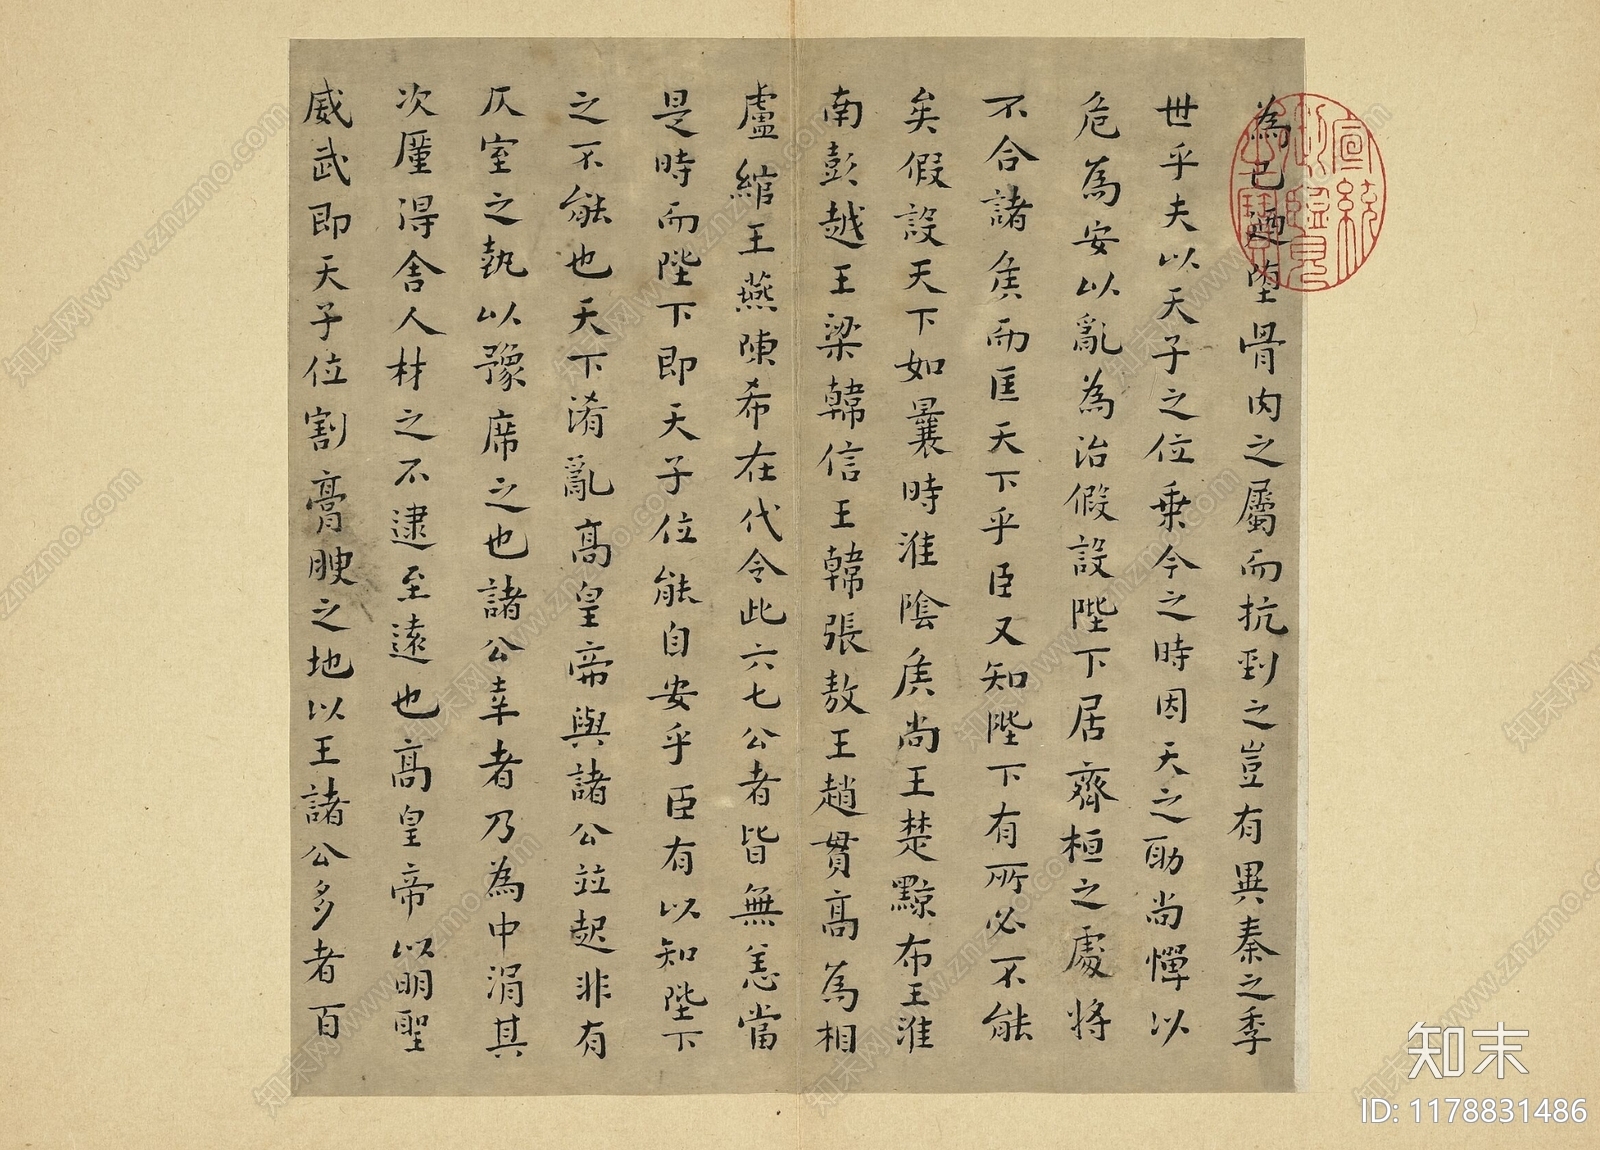 為已迺墮骨肉之屬而抗剄之豈有異秦之季
世乎夫以天子之位乗今之時因天之助尚憚以
危為安以亂為治假設陛下居齊桓之處將
不合諸矦而匡天下乎臣又知陛下有所必不能
矣假設天下如曩時淮陰矦尚王楚黥布王淮
南彭越王梁韓信王韓張敖王趙貫高為相
盧綰王燕陳希在代令此六七公者皆無恙當
是時而陛下即天子位能自安乎臣有以知陛下
之不能也天下淆亂高皇帝與諸公竝起非有
仄室之埶以豫席之也諸公幸者乃為中涓其
次廑得舍人材之不逮至遠也高皇帝以明聖
威武即天子位割膏腴之地以王諸公多者百
宣統御覽之寶
知末
ID: 1178831486
知末网www.znzmo.com